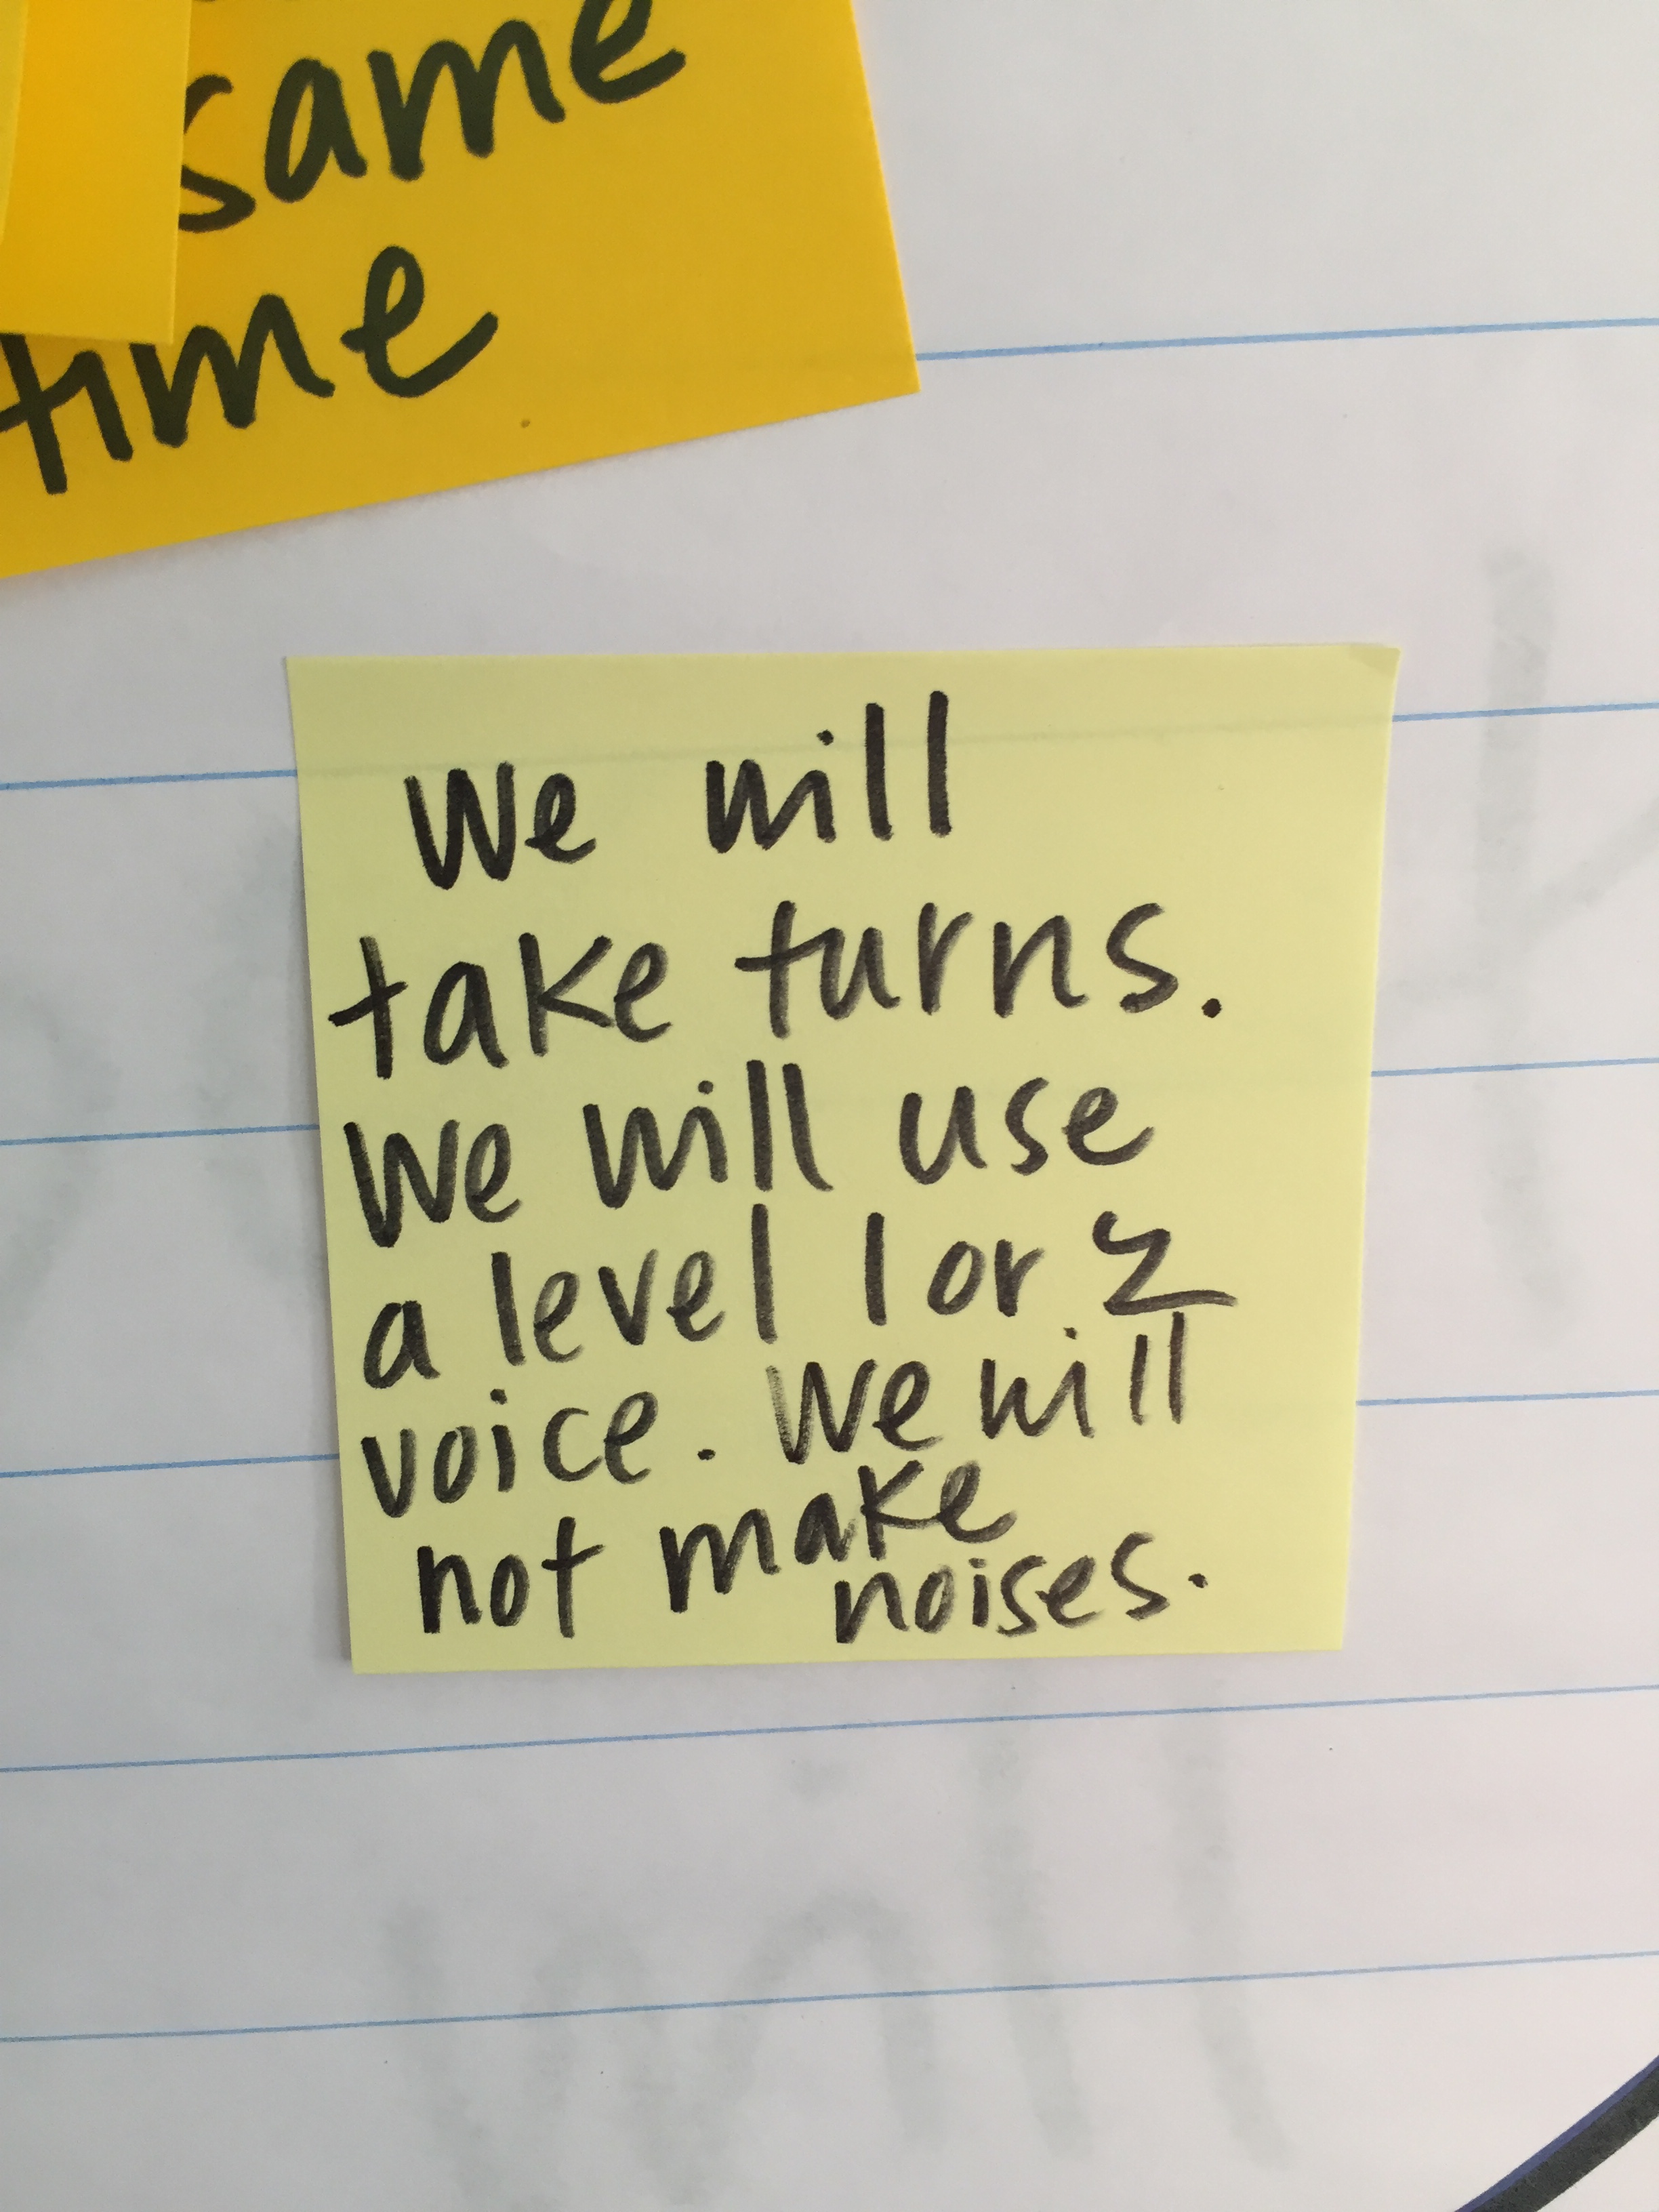 same
time
We will
take turns.
We will use
a level 1 or 2
voice. We will
not make
noises.